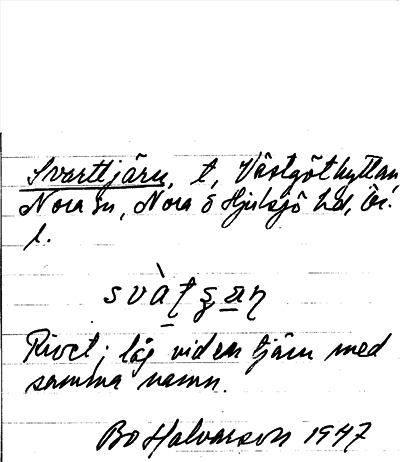 Svarttjärn, t, Västgöthyttan
Nora sn, Nora o Hjulsjö hd, Ör.
l.
svàt̠ʂa̠ɳ
Rivet; låg vid en tjärn med
samma namn.
Bo Halvarson 1947